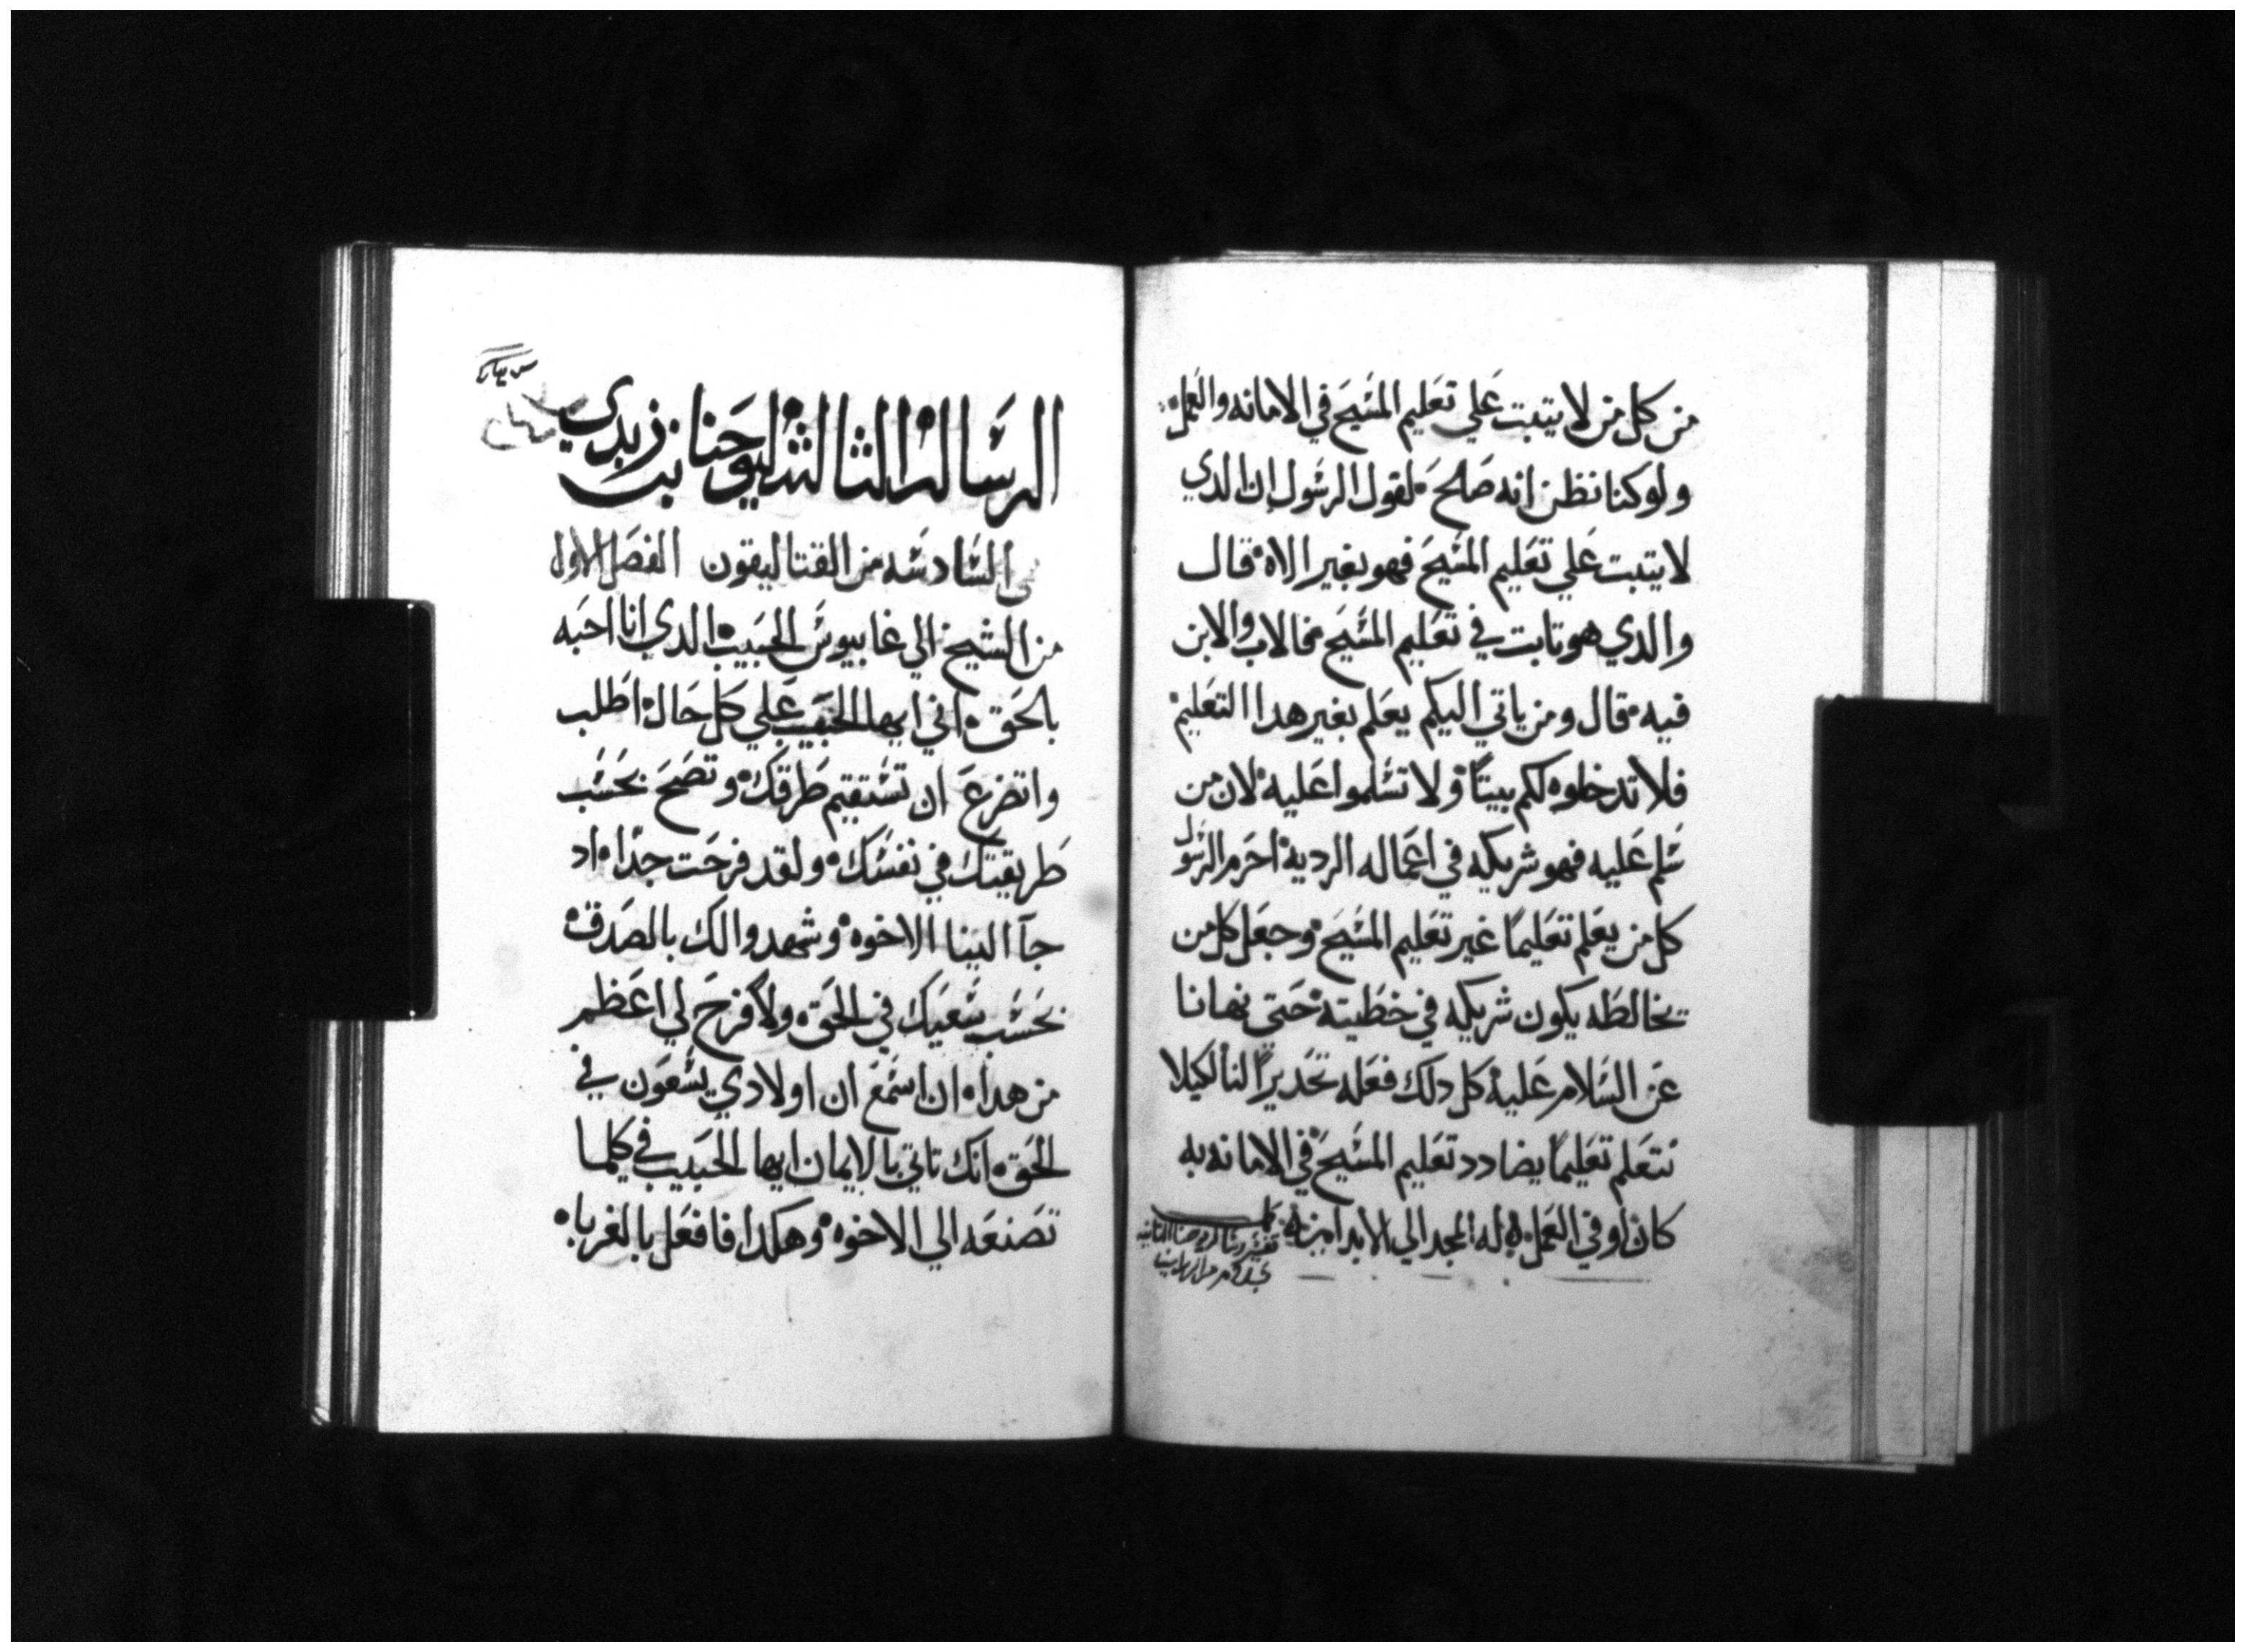 من كل من لا يتبت علي تعليم المسيح في الامانه والعمل
ولو كنا نظن انه صالح لقول الرسول ان الدي
لا يتبت علي تعليم المسيح فهو بغير الاه قال
والدي هو تابت في تعليم المسيح فالاب والابن
فيه قال ومن ياتي اليكم يعلم بغير هدا التعليم
فلا تدخلوه لكم بيتًا ولا تسلموا عليه لان من
سلم عليه فهو شريكه في اعماله الرديه احرم الرسول
كل من يعلم تعليمًا غير تعليم المسيح وجعل كل من
يخالطه يكون شريكه في خطيته حتي نهانا
عن السلام عليه كل دلك فعله تحديرًا لنا لكيلا
نتعلم تعليمًا يضادد تعليم المسيح في الامانه به
كان او في العمل به له المجد الي الابد امين
تفسير رسالة يوحنا التانيه
الرساله الثالثه ليوحنا بن زبدي
السادسه من القتاليقون الفصل الاول
من الشيخ الي غابيوس الحبيب الدي انا احبه
بالحق اني ايها الحبيب علي كل حال اطلب
واتضرع ان تستقيم طرقك وتصح بحسب
طريقتك في نفسك ولقد فرحت جدًا اد
جآ الينا الاخوه وشهدوا لك بالصدق
بحسب سعيك في الحق ولا فرح لي اعظم
من هدا ان اسمع ان اولادي يسعون في
الحق انك تاتي بالايمان ايها الحبيب في كلما
تصنعه الي الاخوه وهكدا فافعل بالغربا